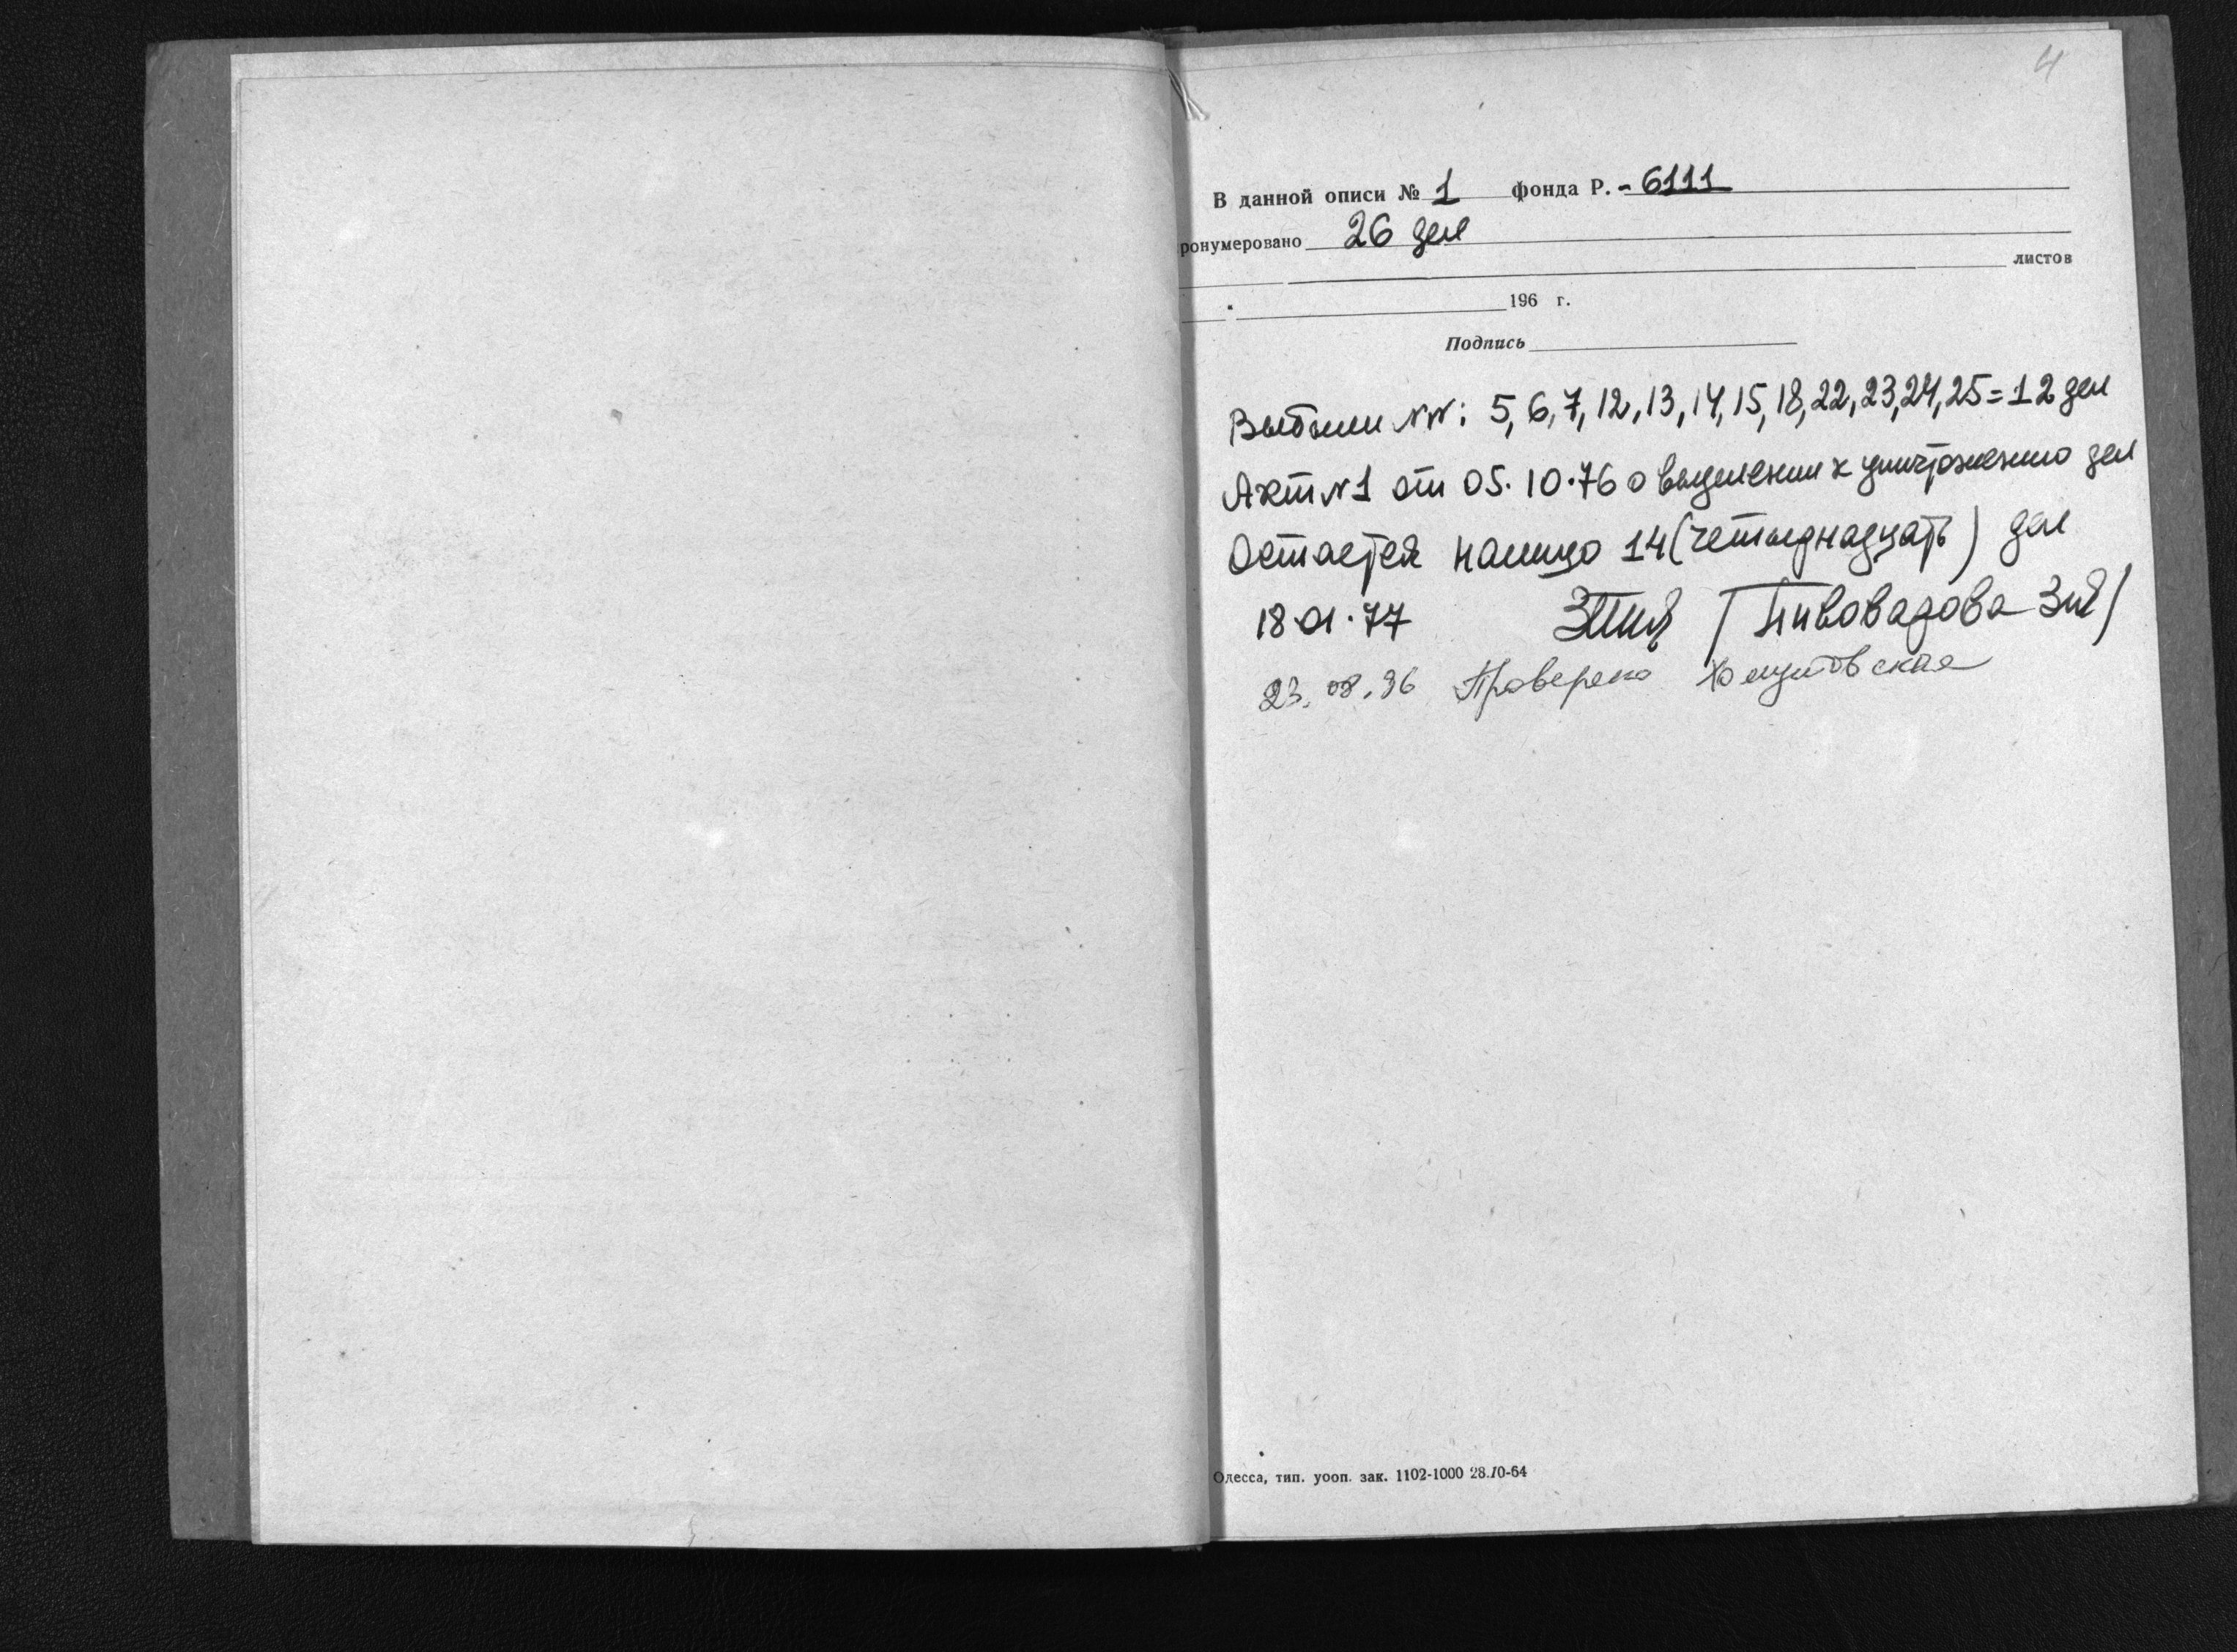 4
В данной описи № 1 фонда Р. - 6111
ронумеровано 26 дел
листов
196 г.
Подпись
Выбыли №№: 5, 6, 7, 12, 13, 14, 15, 18, 22, 23, 24, 25 = 12 дел
Акт №1 от 05.10.76 о выделении к уничтожению дел
Остается налицо 14 (четырнадцать) дел
18.01.77 / Пивоварова
23.08.96 Проверено
Одесса, тип. уооп. зак. 1102-1000 28.10-64